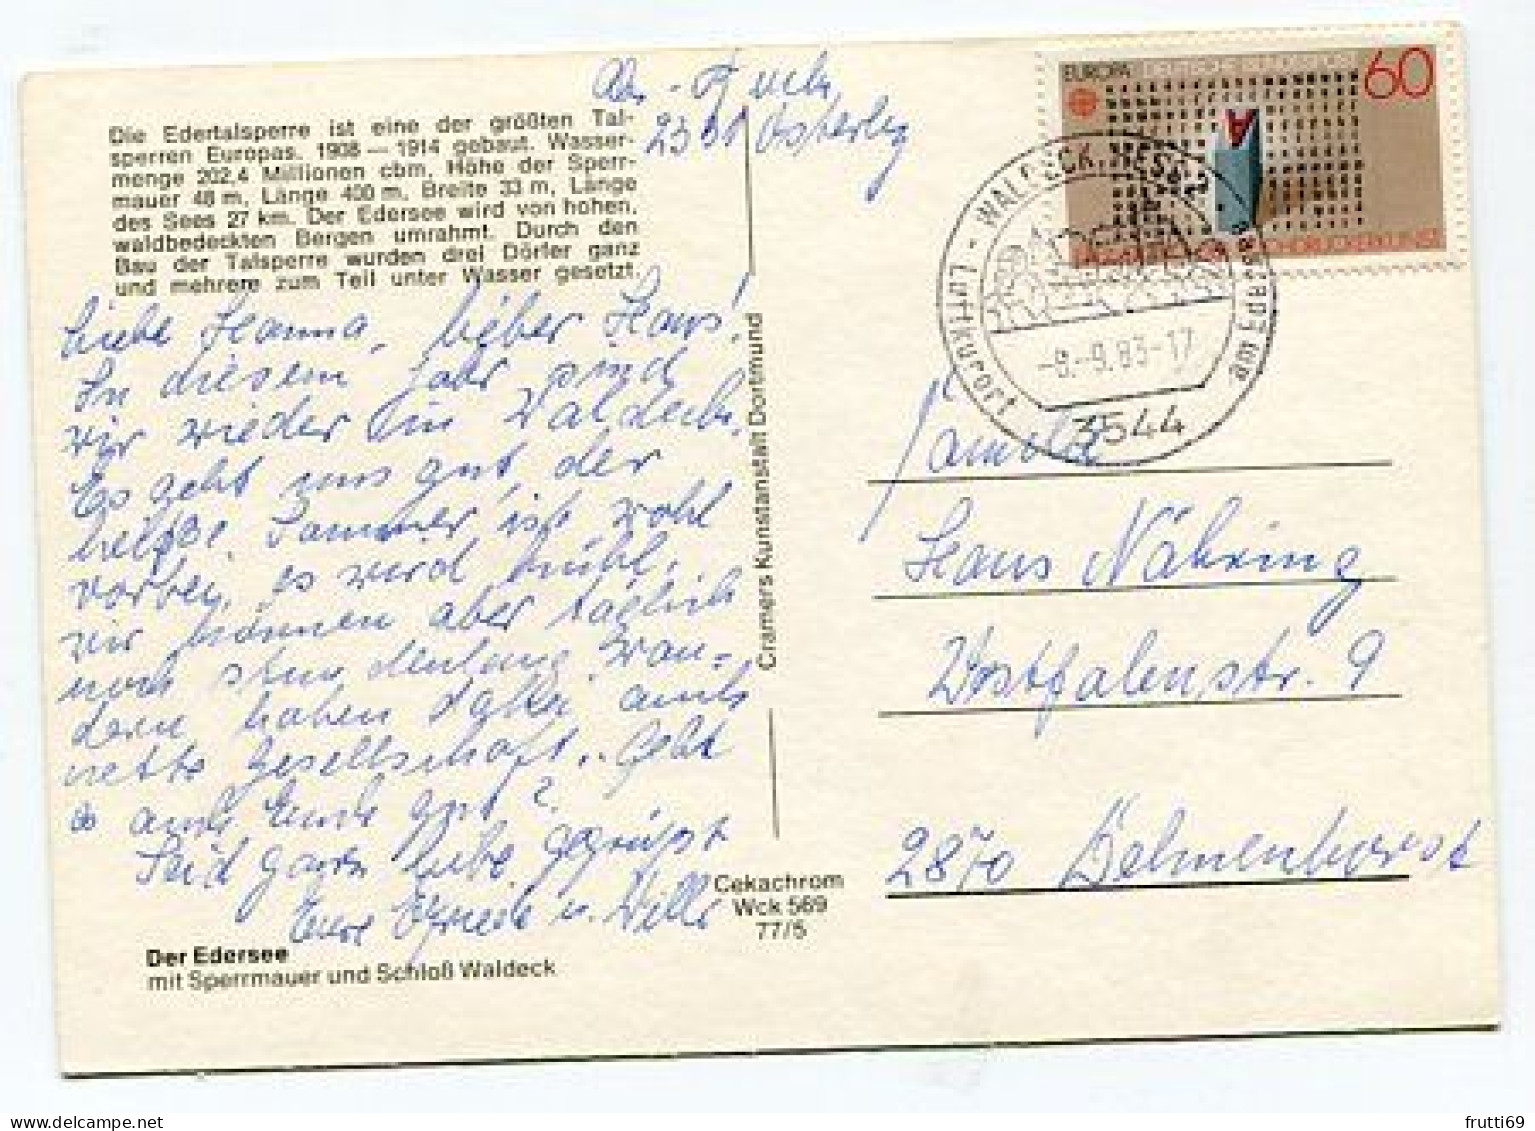 2301 Osterby
Die Edertalsperre ist eine der größten Tal-
sperren Europas. 1908 — 1914 gebaut. Wasser-
menge 202,4 Millionen cbm, Höhe der Sperr-
mauer 48 m, Länge 400 m, Breite 33 m, Länge
des Sees 27 km. Der Edersee wird von hohen,
waldbedeckten Bergen umrahmt. Durch den
Bau der Talsperre wurden drei Dörfer ganz
und mehrere zum Teil unter Wasser gesetzt.
Liebe Hanna, lieber Hans!
In diesem Jahr sind
wir wieder in Waldeck.
Es geht uns gut, der
heiße Sommer ist wohl
vorbei, es wird kühl,
wir können aber täglich
noch stundenlang wan-
dern haben dabei auch
nette Gesellschaft. Geht
es auch Euch gut?
Seid ganz liebe gegrüßt
Eure Elfriede u. Willi
Der Edersee
mit Sperrmauer und Schloß Waldeck
Cramers Kunstanstalt Dortmund
Cekachrom
Wck 569
77/5
EUROPA DEUTSCHE BUNDESPOST
60
BUCHDRUCKERKUNST
Luftkurort - WALDECK, HESS
am Edersee
-9.-9.83-17
3544
Familie
Hans Nähring
Westfalenstr. 9
2870 Delmenhorst
frutti69